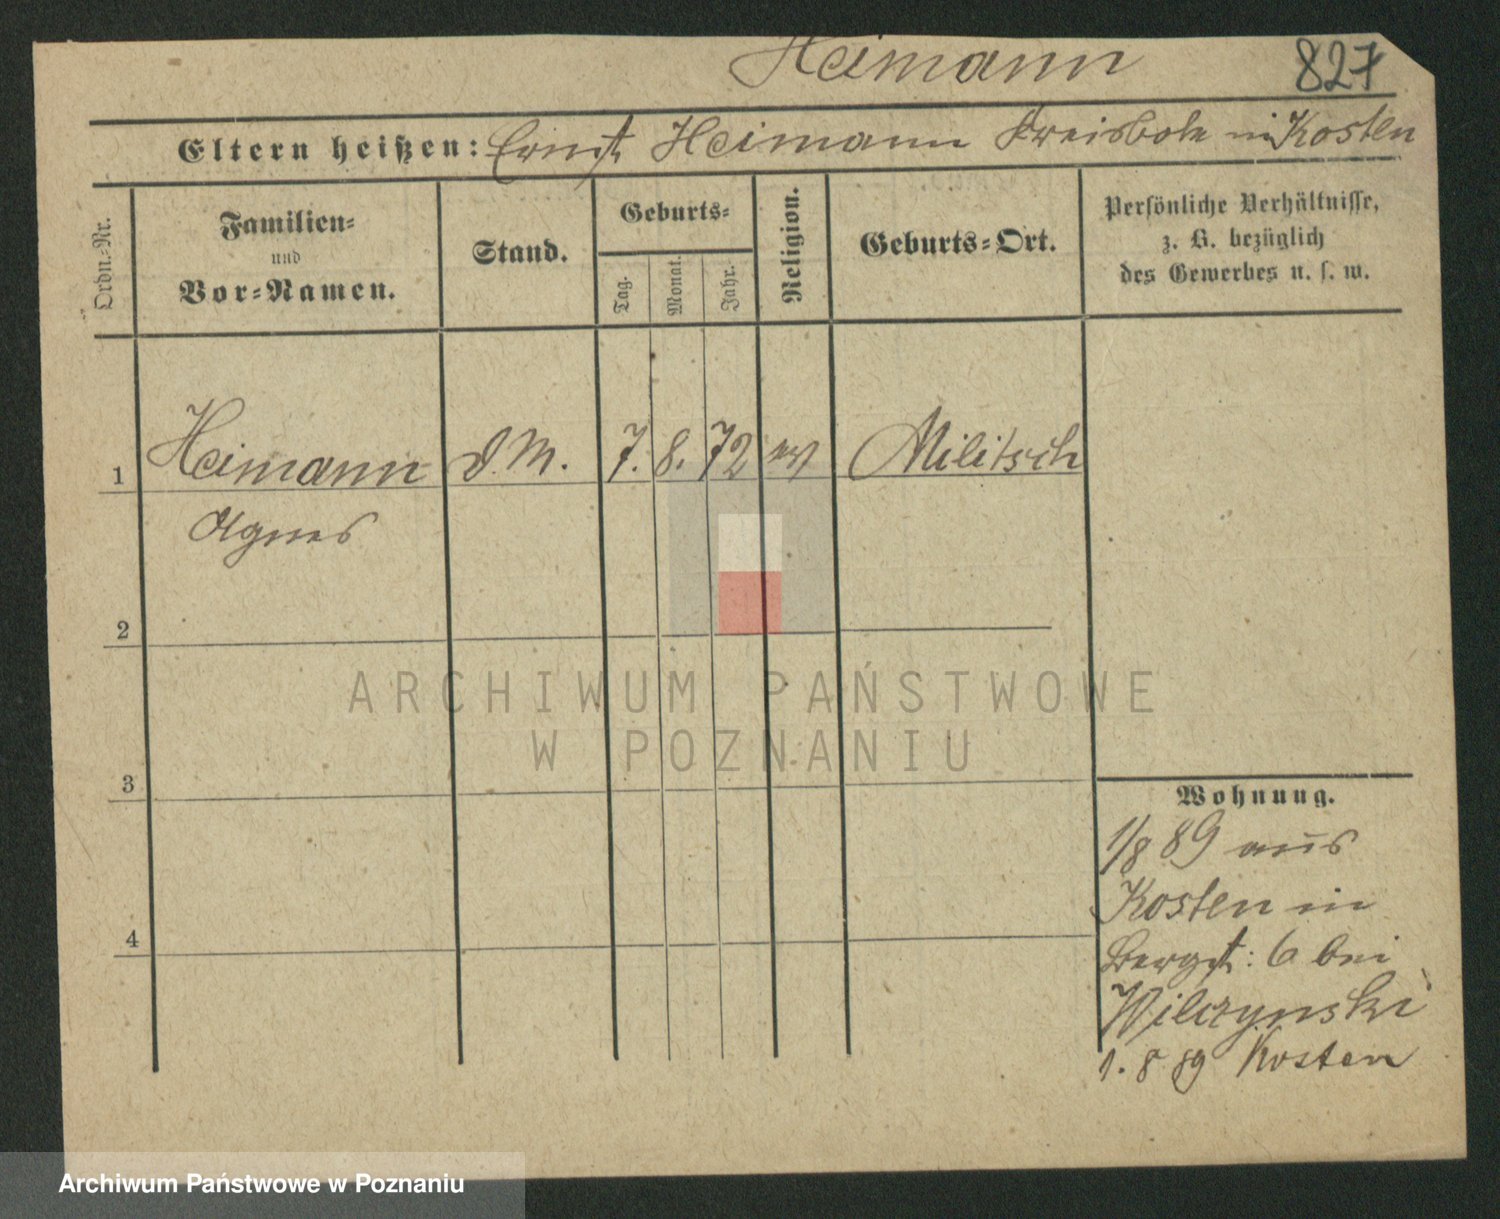 Heimann
827
Eltern heißen: Ernst Heimann Kreisbote in Kosten
Ordn.-Nr.
Familien-
und
Vor-Namen.
Stand.
Geburts-
Tag.
Monat.
Jahr.
Religion.
Geburts-Ort.
Persönliche Verhältnisse,
z. B. bezüglich
des Gewerbes u. s. w.
1 Heimann D.M. 7. 8. 72 ev Militsch
Agnes
2
3
4
Wohnung.
1/8 89 aus
Kosten in
Bergst: 6 bei
Wilczynski
1. 8 89 Kosten
ARCHIWUM PAŃSTWOWE
W POZNANIU
Archiwum Państwowe w Poznaniu